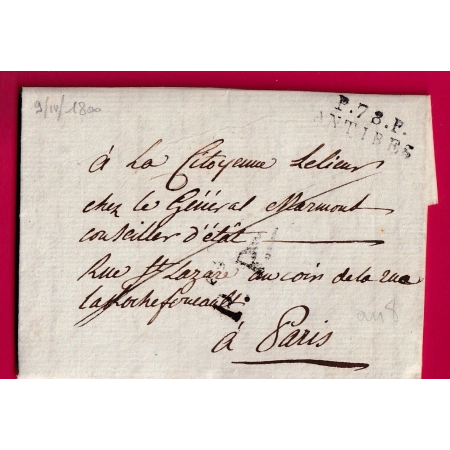 9/IV/1800
P.78.P.
ANTIBES
à La Citoyenne Lelieur
chez le Général Marmont
conseiller d'état
Rue St Lazare au coin de la rue
LaRochefoucault
à Paris
an 8